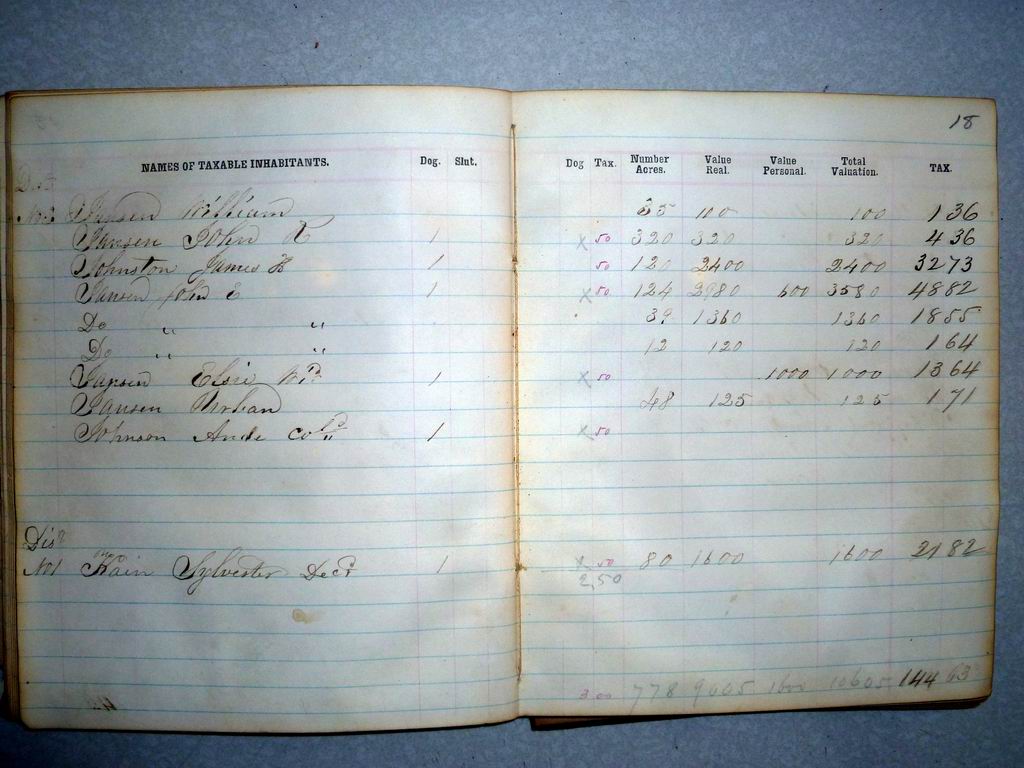 18
NAMES OF TAXABLE INHABITANTS. Dog. Slut. Dog Tax. Number Acres. Value Real. Value Personal. Total Valuation. TAX.
Dis
No 3 Jansen William 35 100 100 1 36
Jansen John R 1 x 50 320 320 320 4 36
Johnston James H 1 50 120 2400 2400 32 73
Jansen John E 1 x 50 124 2980 600 3580 48 82
Do " " 39 1360 1360 18 55
Do " " 12 120 120 1 64
Jansen Elsie Wid 1 x 50 1000 1000 13 64
Jansen Urban 48 125 125 1 71
Johnson Ande Cold 1 x 50
Dist
No 1 McKain Sylvester Decd 1 x 50 80 1600 1600 21 82
2,50
3 00 778 9005 1600 10605 144 63